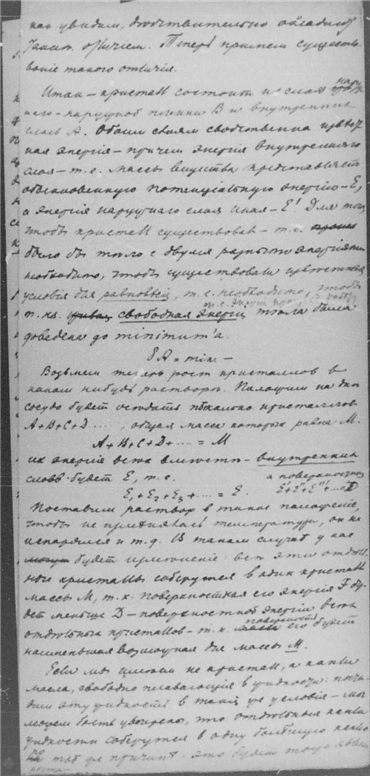 как увидим, действительно обладают
таким отличием. Теперь примем существо-
вание такого отличія.
Итак – кристалл состоит из слоя нару-
наго – наружной пленки B и внутренняго
слоя A. Обоим слоям свойственна известная
энергия – причем энергия внутренняго
слоя – т.е. массы вещества представляет
обыкновенную потенциальную энергию – E,
а энергия наружнаго слоя иная – E' Для того
чтобы кристалл существовал – т.е.
было бы тело с двумя разными энергиями
необходимо, чтобы существовали известныя
условия для равновесия, т.е. необходимо, чтобы
т. наз. свободная энергия тела была
доведена до minimum'a.
= min. –
Возьмем теперь рост кристаллов в
каком нибудь растворе. Положим на дно
сосуда будет осадок несколько кристаллов
A+B+C+D..., общая масса которых равна M.
A + B + C + D + ... = M
их энергия всех вместе – внутренних
слоев будет E, т.е. а поверхностн.
E₁ + E₂ + E₃ + ... = E. E'+E''+E'''... = D
Поставим раствор в такое положение,
чтобы не применялась температура, он не
испарялся и т.д. В таком случае у нас
будет изменение: все эти отдель-
ные кристаллы соберутся в один кристалл
массы M, т.к. поверхностная его энергия F бу-
дет меньше D – поверхностной энергии всех
отдельных кристаллов – т.к. поверхность его будет
наименьшая возможная для массы M.
Если мы имеем не кристалл, а капли
масла, свободно плавающія в жидкости:
эту жидкость в таких же условиях – мы
можем быть уверены, что отдельныя капли
жидкости соберутся в одну большую каплю
по той же причине. Это будет